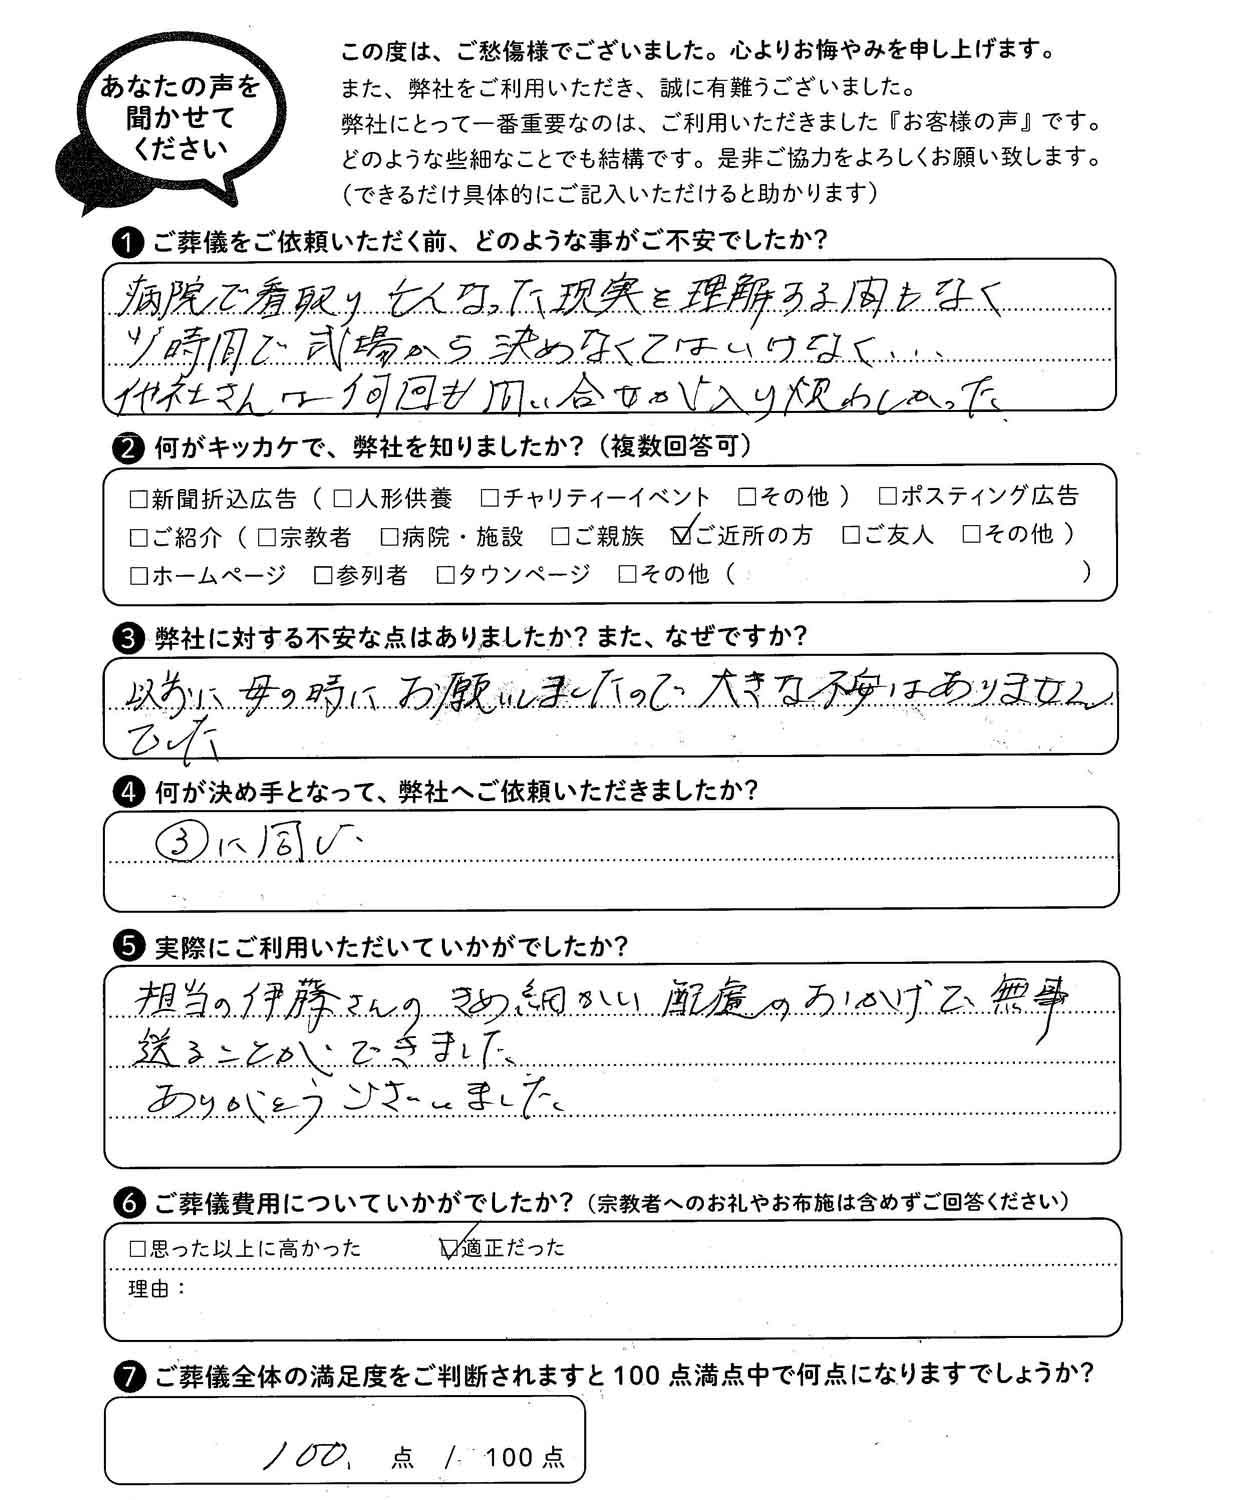 あなたの声を
聞かせて
ください
この度は、ご愁傷様でございました。心よりお悔やみを申し上げます。
また、弊社をご利用いただき、誠に有難うございました。
弊社にとって一番重要なのは、ご利用いただきました『お客様の声』です。
どのような些細なことでも結構です。是非ご協力をよろしくお願い致します。
（できるだけ具体的にご記入いただけると助かります）
❶ ご葬儀をご依頼いただく前、どのような事がご不安でしたか？
病院で看取り亡くなった現実を理解する間もなく
時間で式場から決めなくてはいけなく...
他社さんは何回も問い合せが入り煩わしかった
❷ 何がキッカケで、弊社を知りましたか？（複数回答可）
□新聞折込広告（ □人形供養 □チャリティーイベント □その他 ） □ポスティング広告
□ご紹介（ □宗教者 □病院・施設 □ご親族 ☑ご近所の方 □ご友人 □その他 ）
□ホームページ □参列者 □タウンページ □その他（ ）
❸ 弊社に対する不安な点はありましたか？また、なぜですか？
以前に母の時にお願いしましたので大きな不安はありません
でした
❹ 何が決め手となって、弊社へご依頼いただきましたか？
③に同じ
❺ 実際にご利用いただいていかがでしたか？
担当の伊藤さんのきめ細かい配慮のおかげで無事
送ることができました。
ありがとうございました。
❻ ご葬儀費用についていかがでしたか？（宗教者へのお礼やお布施は含めずご回答ください）
□思った以上に高かった ☑適正だった
理由：
❼ ご葬儀全体の満足度をご判断されますと100点満点中で何点になりますでしょうか？
100 点 / 100点